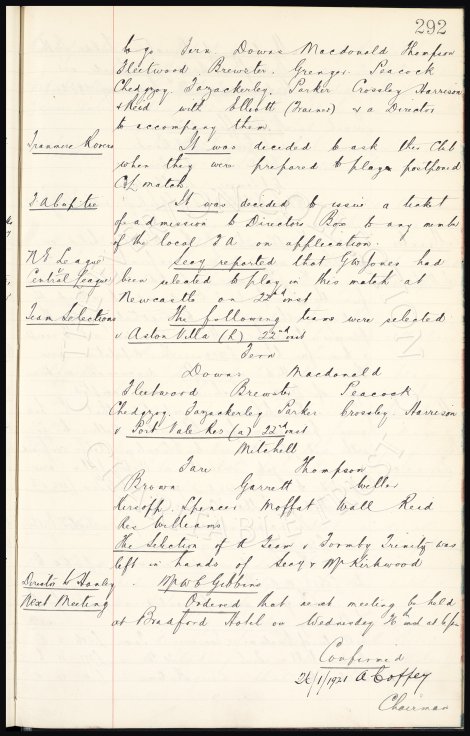 292
to go Fern Downs Macdonald Thompson
Fleetwood Brewster. Grenyer. Peacock
Chedgzoy. Fazackerley. Parker Crossley Harrison
& Reid with Elliott (Trainer) & a Director
to accompany them.
Tranmere Rovers It was decided to ask this Club
when they were prepared to play postponed
C/L match.
F A Cup-tie It was decided to issue a ticket
of admission to Directors Box to any member
of the local F A on application.
N E League
v
Central League
Secy reported that G W Jones had
been selected to play in this match at
Newcastle on 22nd inst
Team Selections The following teams were selected
v Aston Villa (h) 22nd inst
Fern
Downs Macdonald
Fleetwood Brewster Peacock
Chedgzoy. Fazackerley Parker Crossley. Harrison
v Port Vale Res (a) 22nd inst
Mitchell
Tare Thompson
Brown Garrett Weller
Kirsopp Spencer Moffat Wall Reid
Res Williams
The Selection of A Team v Formby Trinity was
left in hands of Secy & Mr Kirkwood
Director to Hanley Mr W C Gibbins
Next Meeting Ordered that next meeting be held
at Bradford Hotel on Wednesday 26 inst at 6 pm
Confirmed
26/1/1921 A Coffey
Chairman